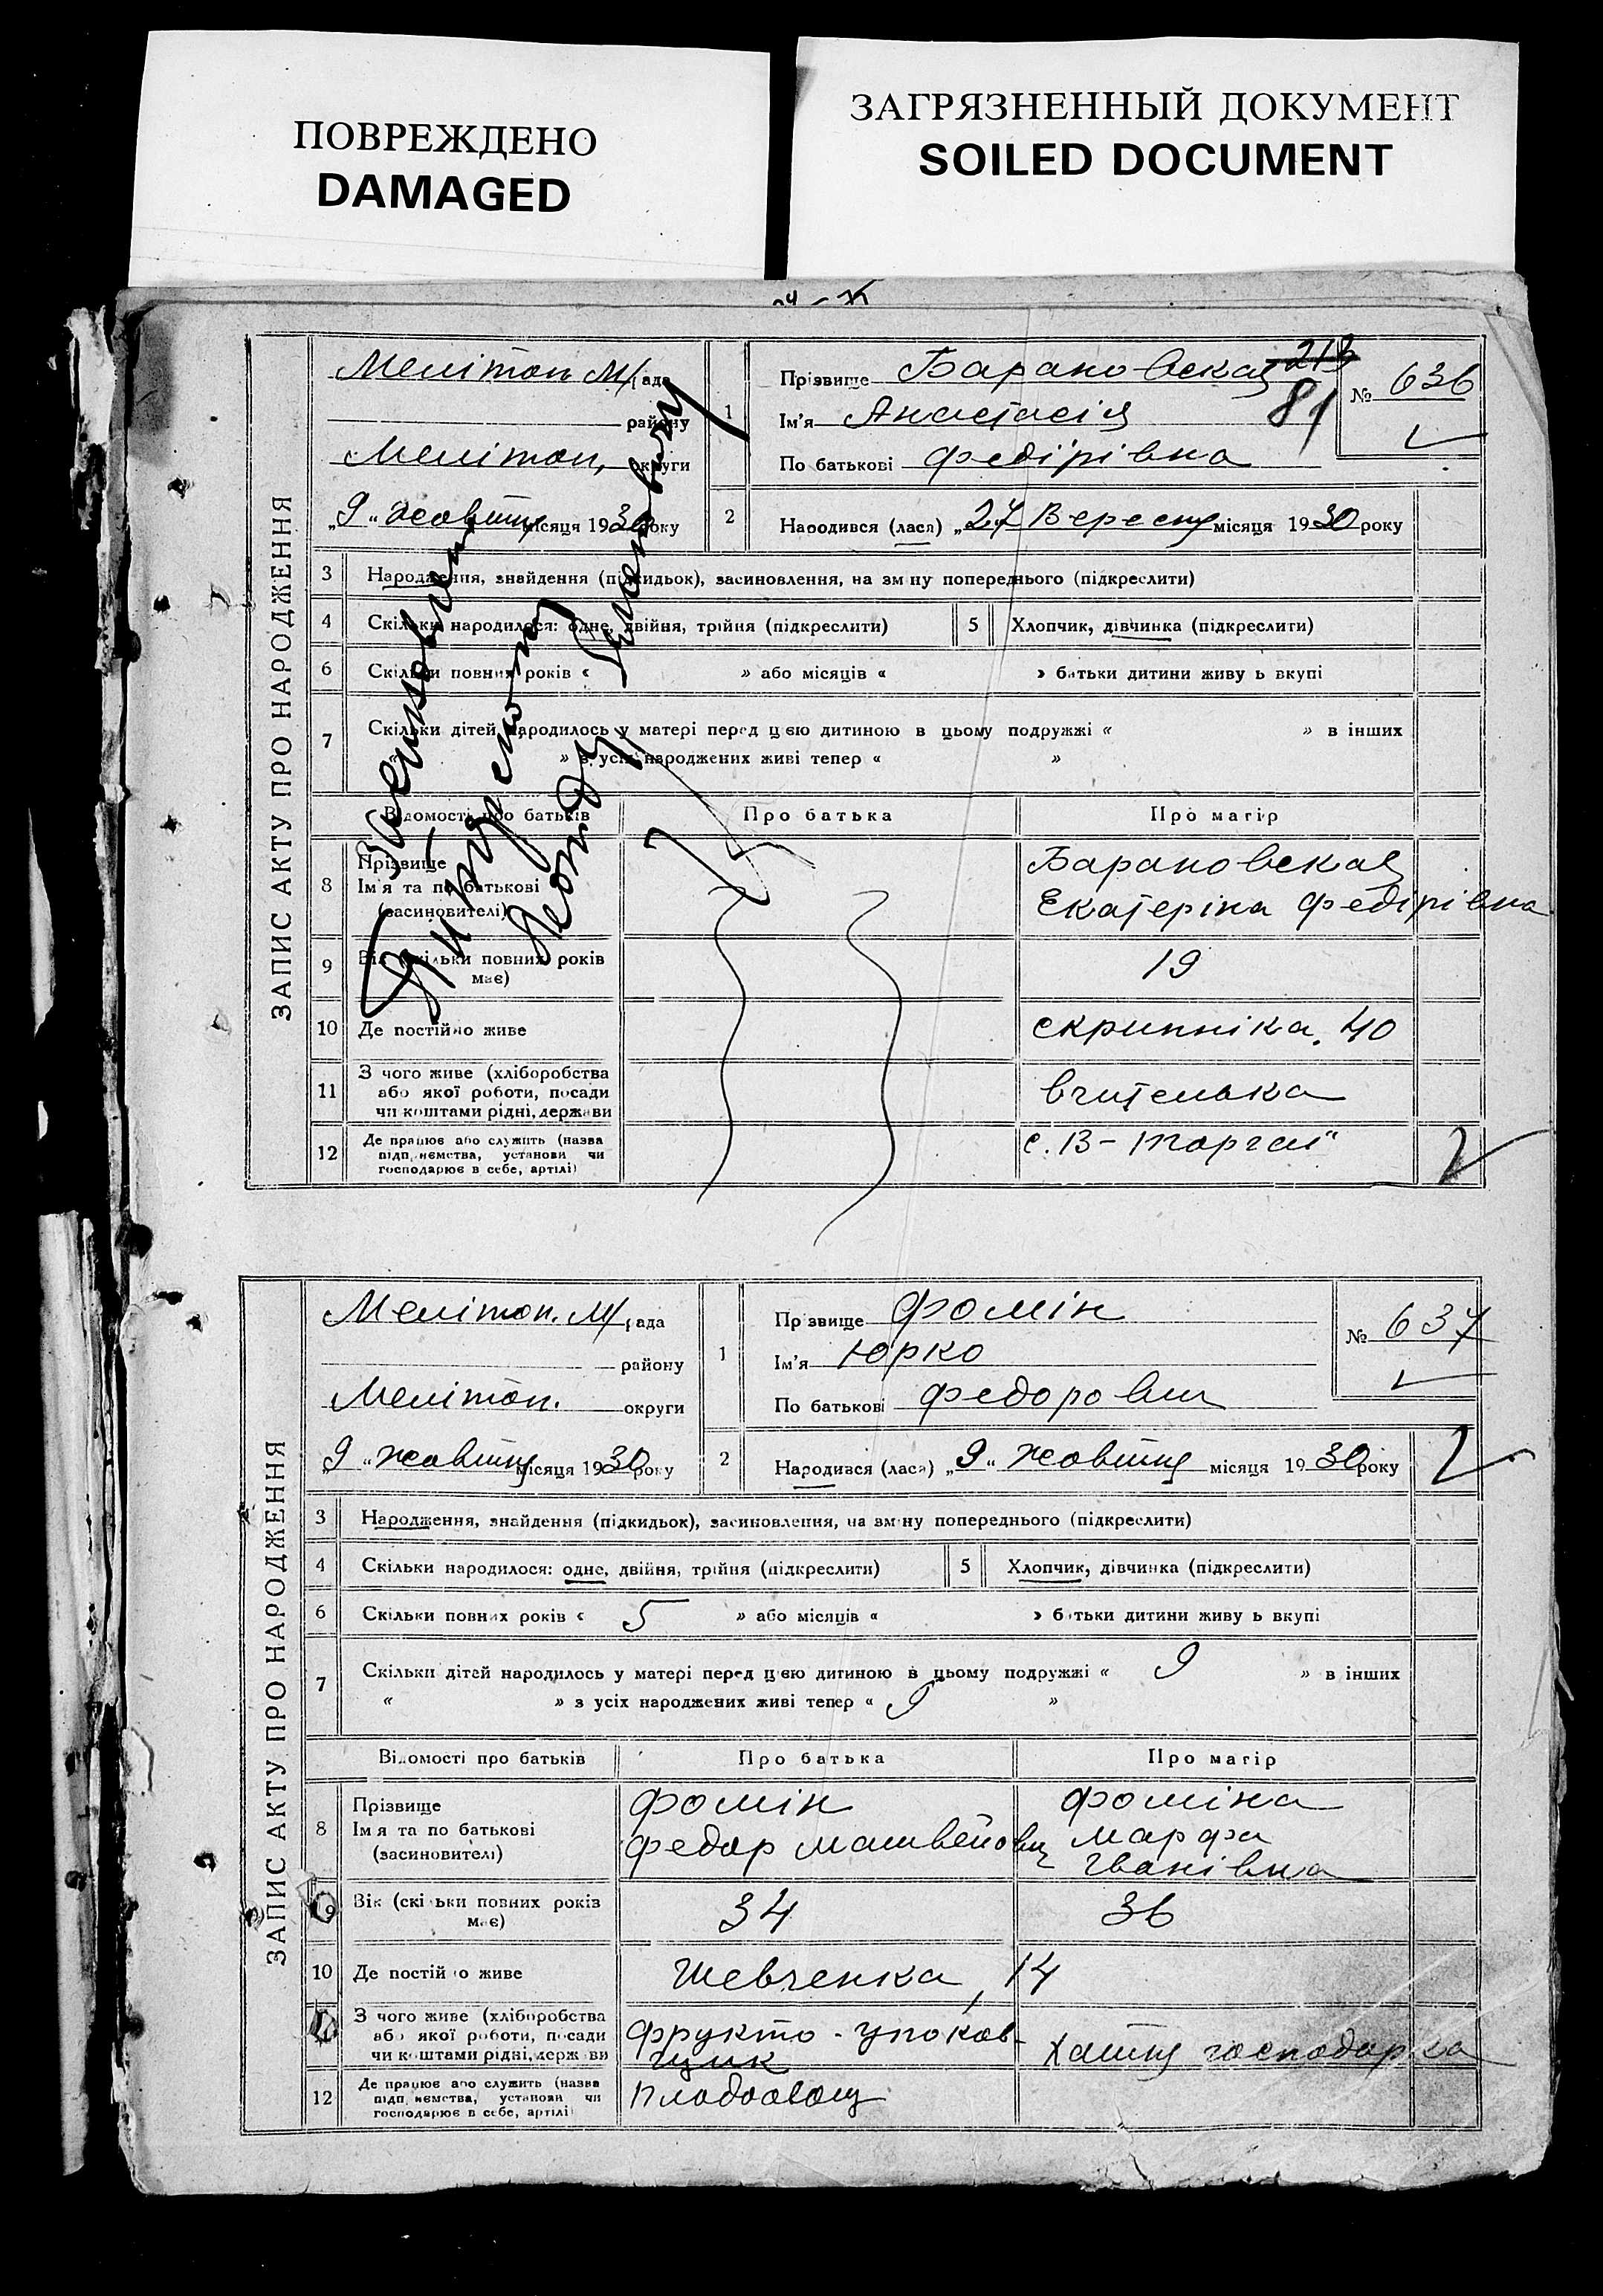 ПОВРЕЖДЕНО
DAMAGED
ЗАГРЯЗНЕННЫЙ ДОКУМЕНТ
SOILED DOCUMENT
ЗАПИС АКТУ ПРО НАРОДЖЕННЯ
Мелітоп. М/рада
району
Мелітоп. округи
„9“ жовтня місяця 1930 року
1
Прізвище Барановская
Ім'я Анастасія
По батькові Федірівна
213
81
№ 636
2
Народився (лася) „27 Вересня місяця 1930 року
3 Народження, знайдення (підкидьок), засиновлення, на зміну попереднього (підкреслити)
4 Скільки народилося: одне, двійня, трійня (підкреслити) 5 Хлопчик, дівчинка (підкреслити)
6 Скільки повних років « » або місяців « » батьки дитини живуть вкупі
7 Скільки дітей народилось у матері перед цією дитиною в цьому подружжі « » в інших
« » з усіх народжених живі тепер « »
Відомості про батьків Про батька Про матір
8 Прізвище
Ім'я та по батькові
(засиновителі)
Барановская
Екатеріна Федірівна
9 Вік (скільки повних років має) 19
10 Де постійно живе Скрипніка, 40
11 З чого живе (хліборобства
або якої роботи, посади
чи коштами рідні, держави
вчителька
12 Де працює або служить (назва
підприємства, установи чи
господарює в себе, артілі)
ЗАПИС АКТУ ПРО НАРОДЖЕННЯ
Мелітоп. М/рада
району
Мелітоп. округи
„9“ жовтня місяця 1930 року
1
Прізвище Фомін
Ім'я Юрко
По батькові Федорович
№ 637
2
Народився (лася) „9“ жовтня місяця 1930 року
3 Народження, знайдення (підкидьок), засиновлення, на зміну попереднього (підкреслити)
4 Скільки народилося: одне, двійня, трійня (підкреслити) 5 Хлопчик, дівчинка (підкреслити)
6 Скільки повних років « 5 » або місяців « » батьки дитини живуть вкупі
7 Скільки дітей народилось у матері перед цією дитиною в цьому подружжі « 9 » в інших
« » з усіх народжених живі тепер « 9 »
Відомості про батьків Про батька Про матір
8 Прізвище
Ім'я та по батькові
(засиновителі)
Фомін
Федор Матвейович
Фоміна
Марфа
Іванівна
9 Вік (скільки повних років має) 34 36
10 Де постійно живе Шевченка, 14
11 З чого живе (хліборобства
або якої роботи, посади
чи коштами рідні, держави
Фрукто-упаков-
щик
Хатня господарка
12 Де працює або служить (назва
підприємства, установи чи
господарює в себе, артілі)
Плодоовощ